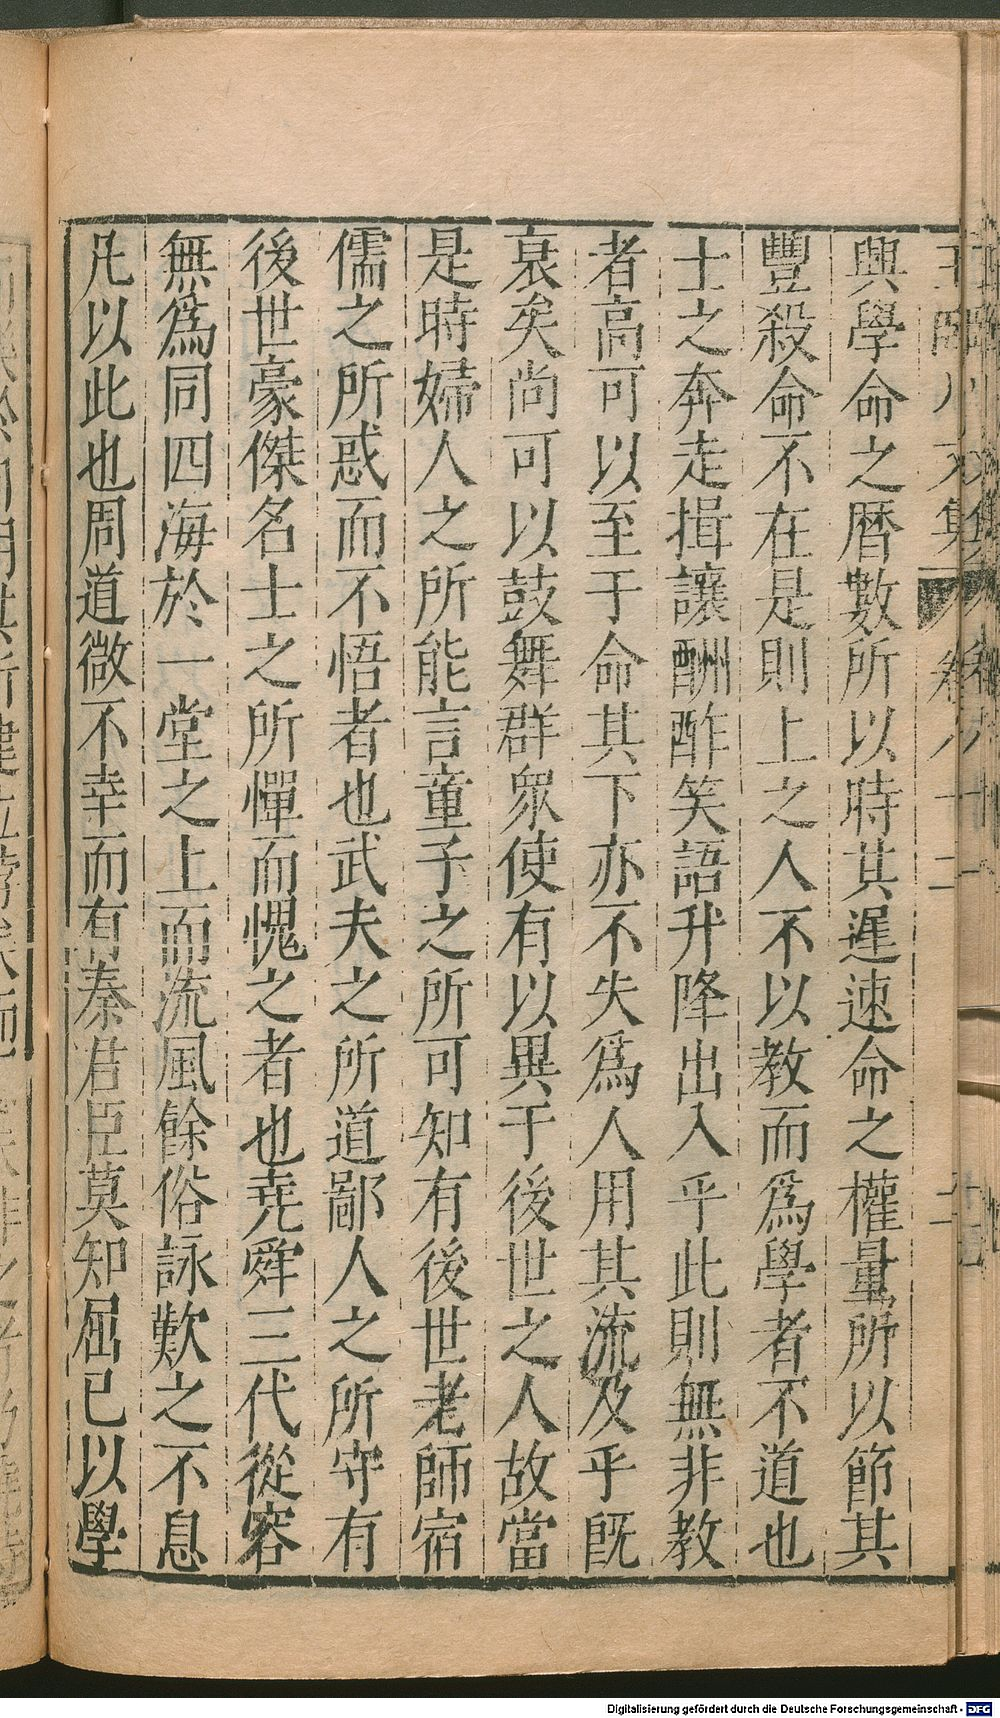 興學命之曆數所以時其遲速命之權量所以節其
豐殺命不在是則上之人不以教而爲學者不道也
士之奔走揖讓酬酢笑語升降出入乎此則無非教
者高可以至于命其下亦不失爲人用其流及乎旣
衰矣尚可以鼓舞群衆使有以異于後世之人故當
是時婦人之所能言童子之所可知有後世老師宿
儒之所惑而不悟者也武夫之所道鄙人之所守有
後世豪傑名士之所憚而愧之者也堯舜三代從容
無爲同四海於一堂之上而流風餘俗詠歎之不息
凡以此也周道微不幸而有秦君臣莫知屈己以學
Digitalisierung gefördert durch die Deutsche Forschungsgemeinschaft - DFG